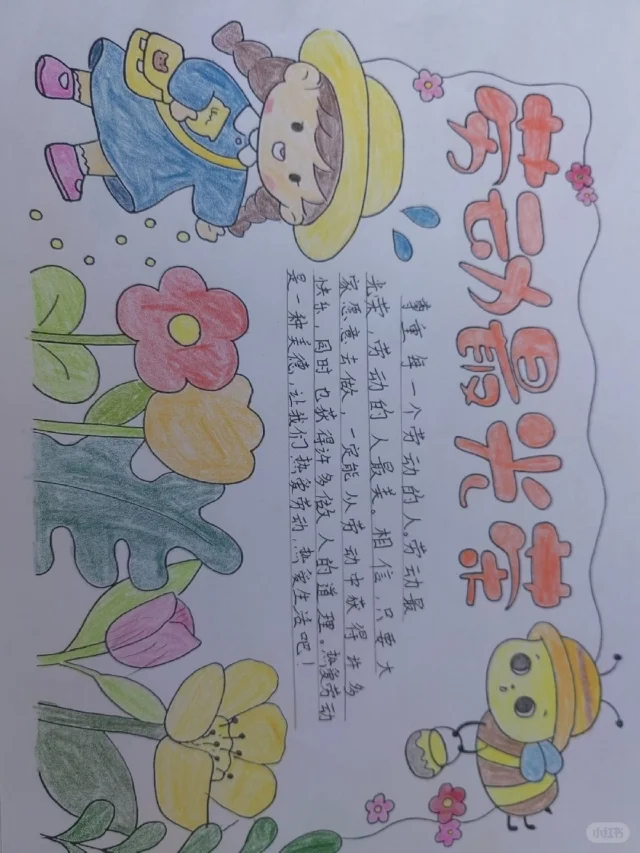 劳动最光荣
尊重每一个劳动的人。劳动最
光荣，劳动的人最美。相信，只要大
家愿意去做，一定能从劳动中获得许多
快乐，同时也获得许多做人的道理。热爱劳动
是一种美德，让我们热爱劳动，热爱生活吧！
小红书